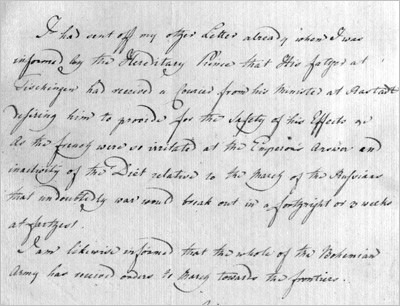 I had sent off my other Letter already when I was
informed by the Hereditary Prince that His father at
had received a Courier from his Minister at Rastadt
desiring him to provide for the Safety of his Effects
As the french were so irritated at the Emperors Answer and
inactivity of the Diet relative to the March of the Russians
that undoubtedly war would break out in a fortnight or 3 weeks
at farthest.
I am likewise informed that the whole of the Bohemian
Army has received orders to March towards the frontiers.